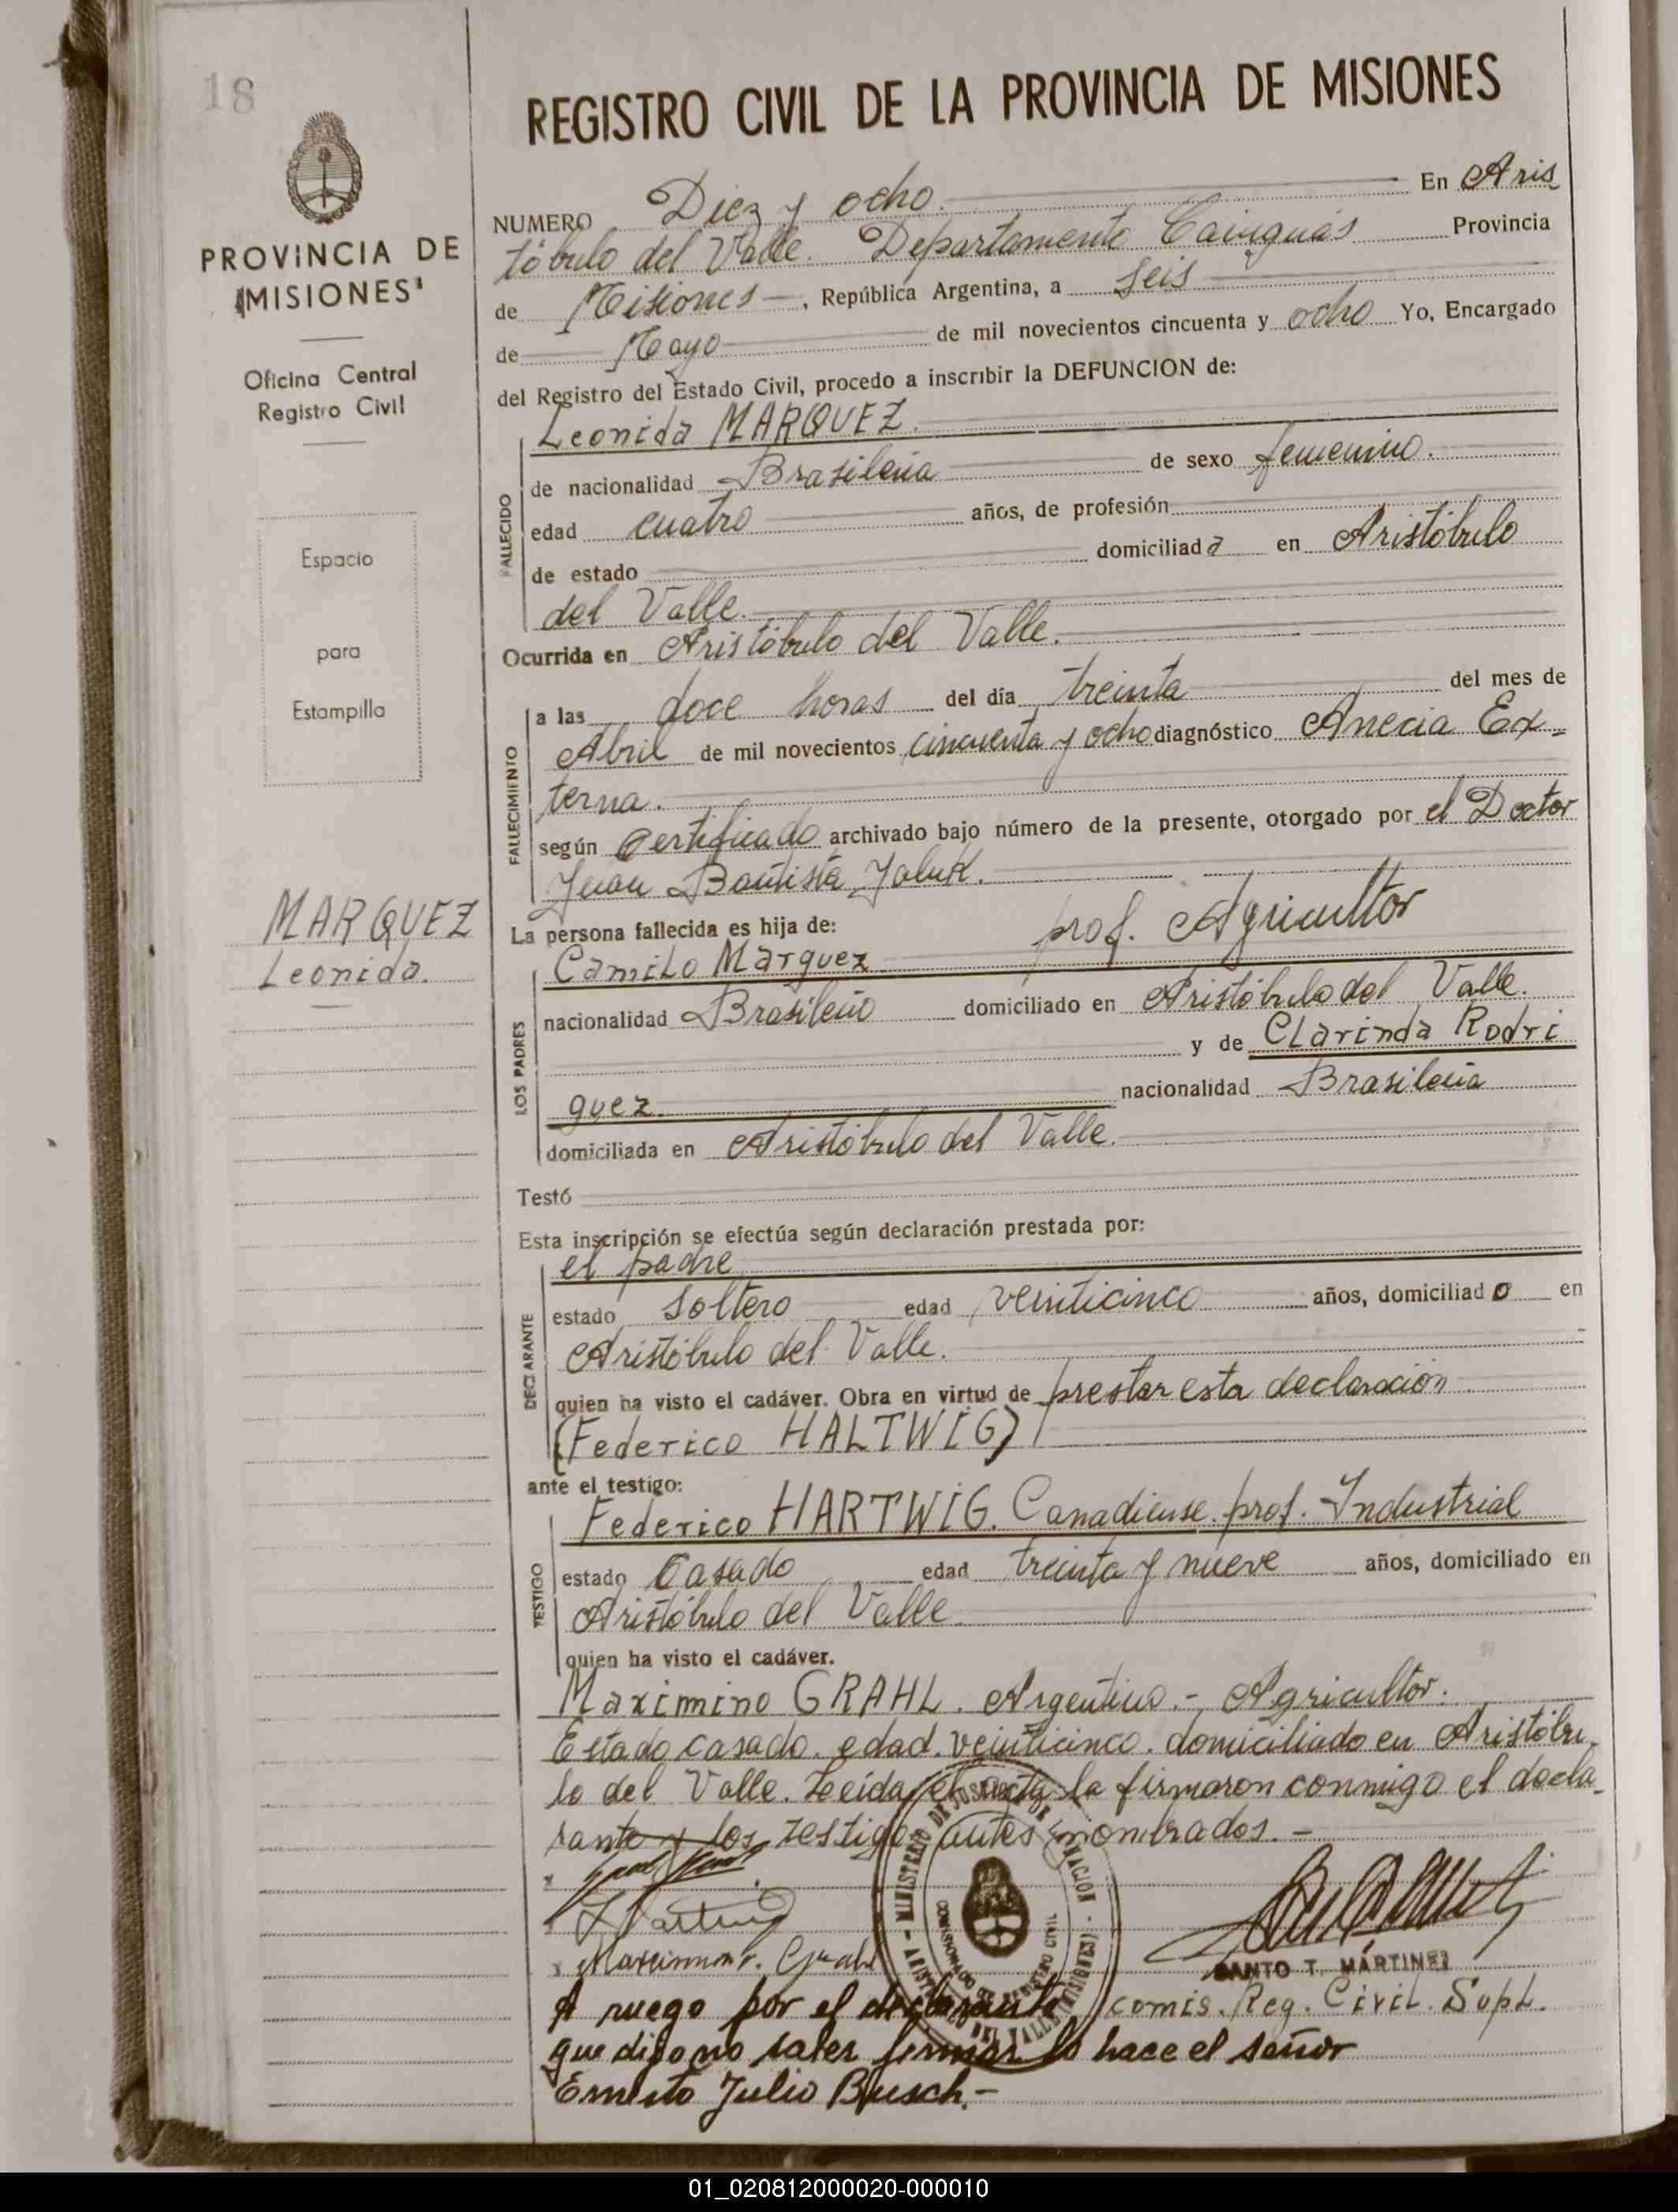 18
PROVINCIA DE
MISIONES
Oficina Central
Registro Civil
Espacio
para
Estampilla
MARQUEZ
Leonida.
REGISTRO CIVIL DE LA PROVINCIA DE MISIONES
NUMERO Diez y ocho. En Aris
tóbulo del Valle. Departamento Cainguás Provincia
de Misiones, República Argentina, a seis
de Mayo de mil novecientos cincuenta y ocho Yo, Encargado
del Registro del Estado Civil, procedo a inscribir la DEFUNCION de:
FALLECIDO
Leonida MARQUEZ.
de nacionalidad Brasileña de sexo femenino.
edad cuatro años, de profesión
de estado domiciliada en Aristóbulo
del Valle.
Ocurrida en Aristóbulo del Valle.
FALLECIMIENTO
a las doce horas del día treinta del mes de
Abril de mil novecientos cincuenta y ocho diagnóstico Anecia Ex-
terna.
según Certificado archivado bajo número de la presente, otorgado por el Doctor
Juan Bautista Jaluk.
La persona fallecida es hija de: prof. Agricultor
LOS PADRES
Camilo Marquez
nacionalidad Brasileño domiciliado en Aristóbulo del Valle.
y de Clarinda Rodri
guez. nacionalidad Brasileña
domiciliada en Aristóbulo del Valle.
Testó
Esta inscripción se efectúa según declaración prestada por:
DECLARANTE
el padre
estado soltero edad veinticinco años, domiciliado en
Aristóbulo del Valle.
quien ha visto el cadáver. Obra en virtud de prestar esta declaración
(Federico HALTWIG)
ante el testigo:
TESTIGO
Federico HARTWIG. Canadiense. prof. Industrial
estado Casado edad treinta y nueve años, domiciliado en
Aristóbulo del Valle
quien ha visto el cadáver.
Maximino GRAHL. Argentino.- Agricultor.
Estado casado. edad. veinticinco. domiciliado en Aristóbu-
lo del Valle. Leída el acta la firmaron conmigo el decla-
rante y los testigos antes nombrados.-
MINISTERIO DE
NACION
(MISIONES)
REGISTRO CIVIL
DEL VALLE
SANTO T. MARTINEZ
comis. Reg. Civil. Supl.
A ruego por el declarante
que dijo no saber firmar lo hace el señor
Ernesto Julio Busch.-
01_020812000020-000010